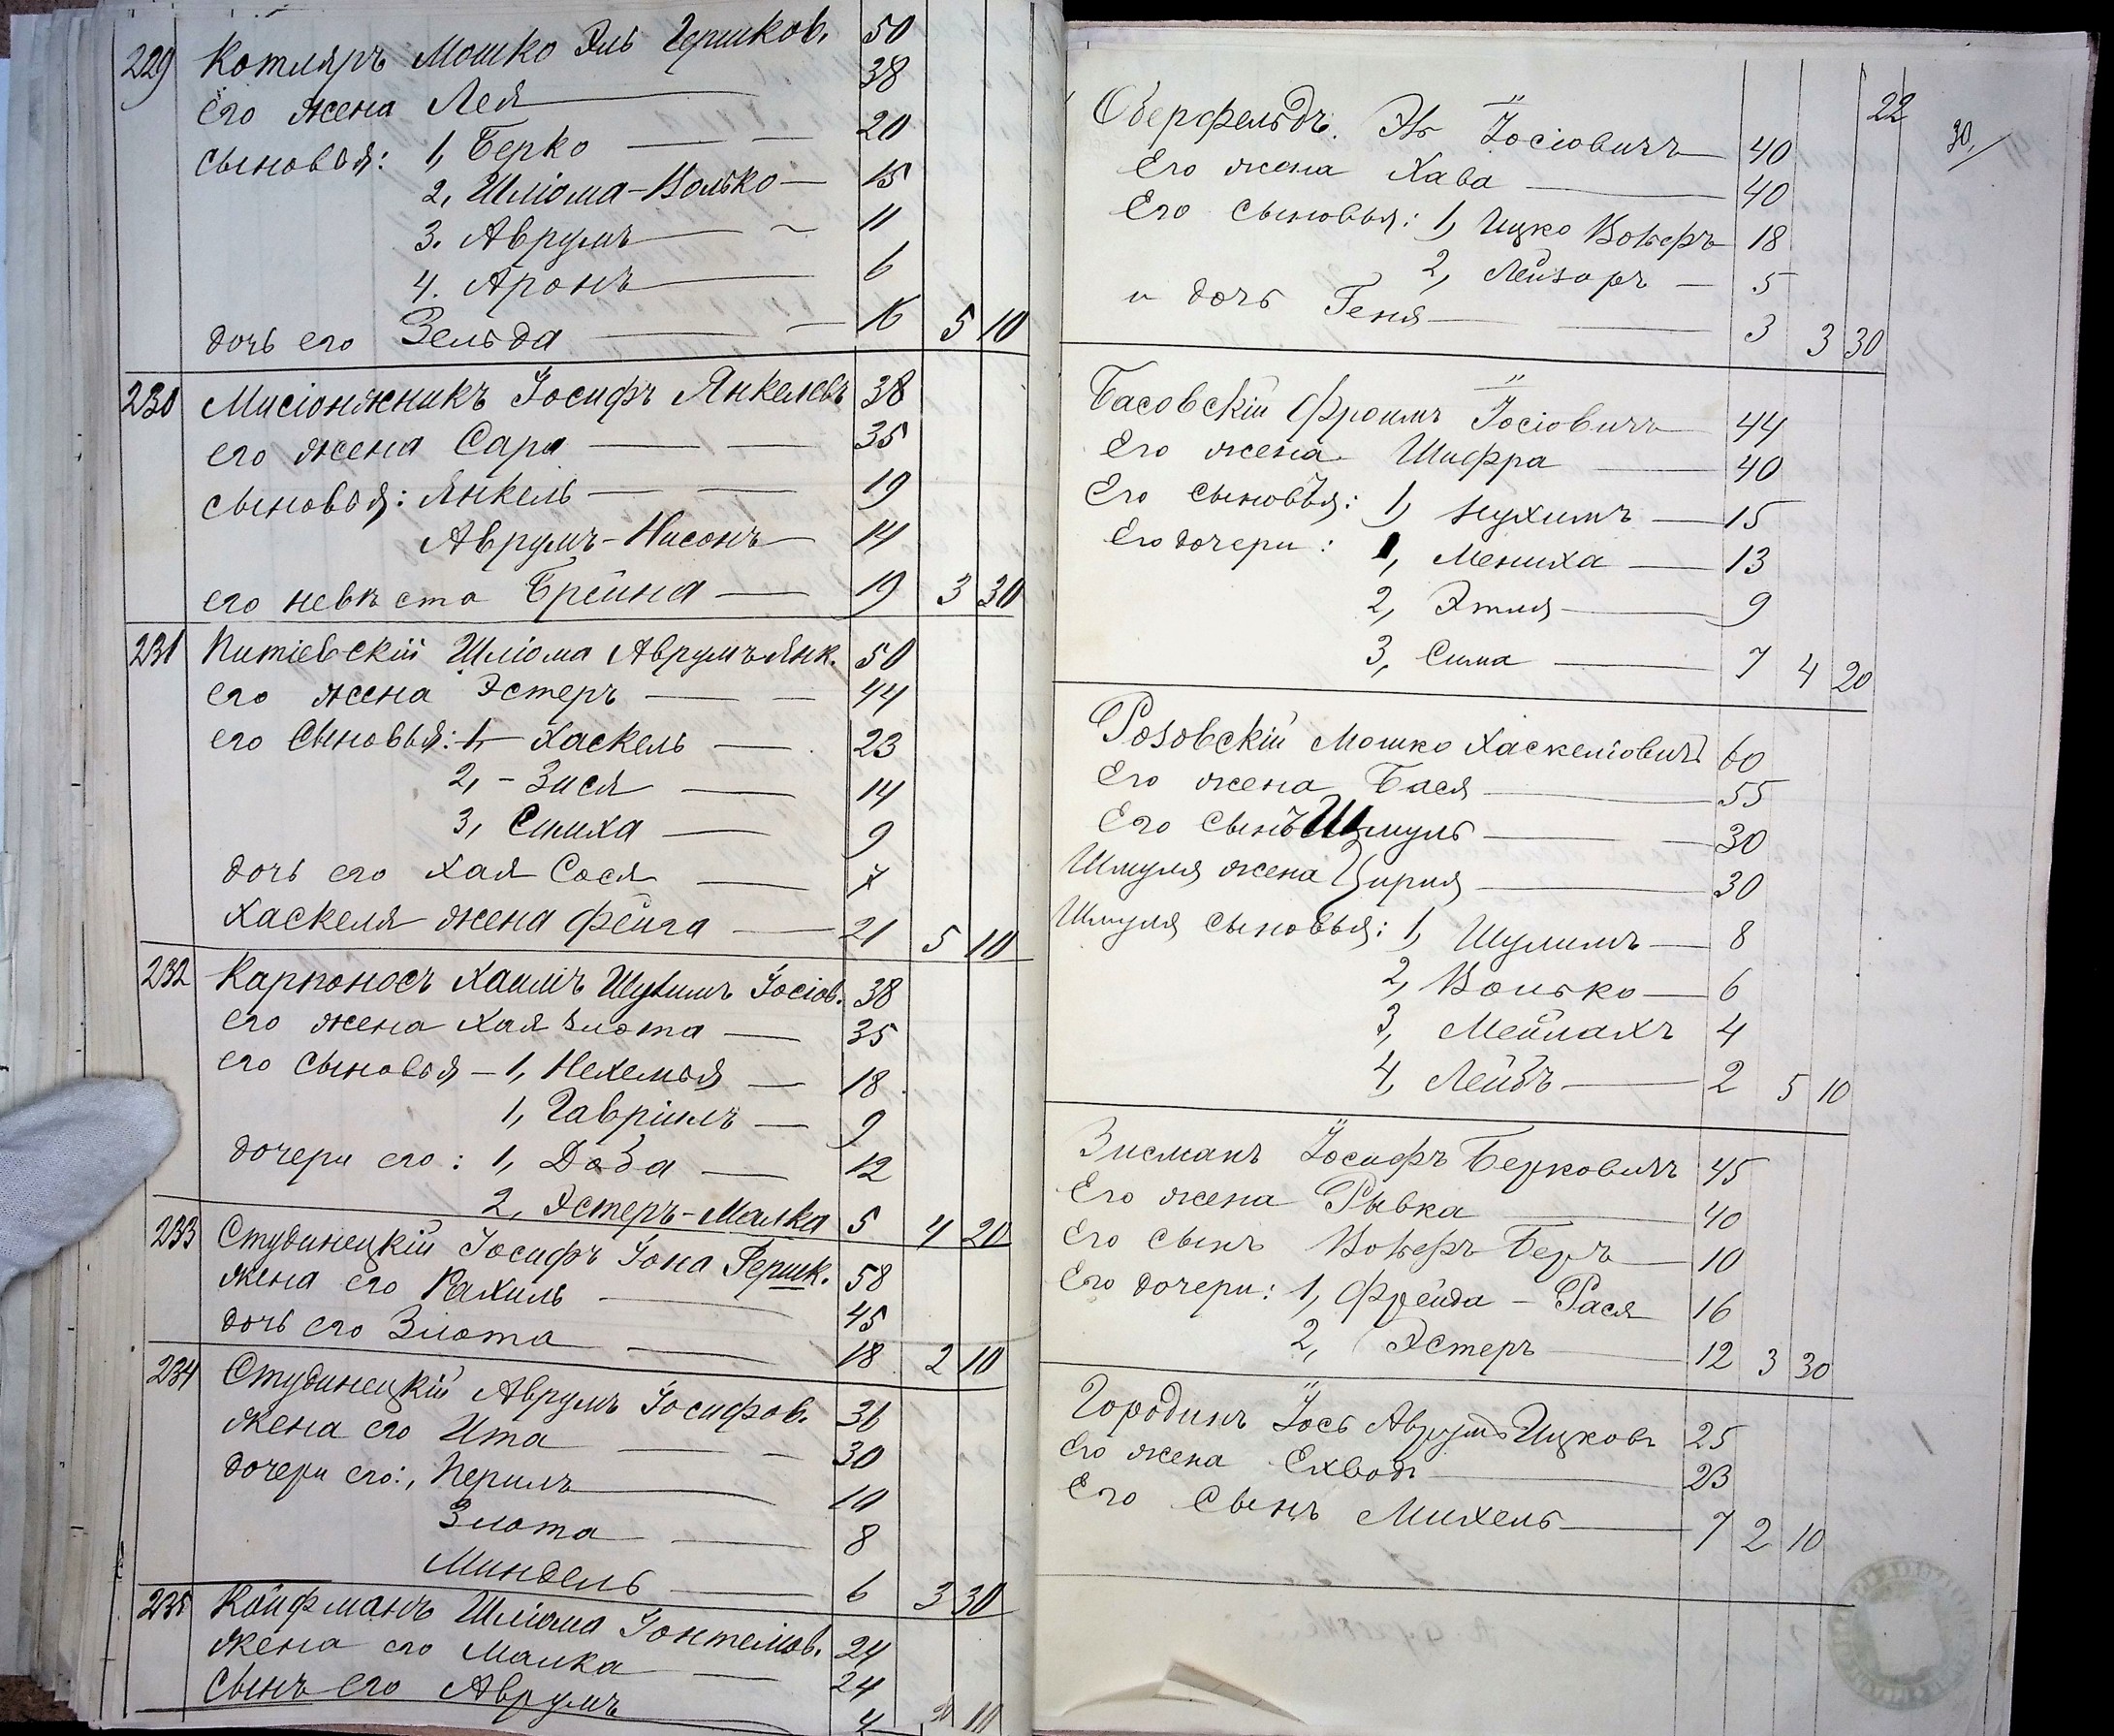 229 Котляръ Мошко Эль Гершков. 50
его жена Лея 38
сыновья: 1, Берко 20
2, Шліома-Волько 15
3. Аврумъ 11
4. Аронъ 6
дочь его Зельда 16 5 10
230 Мисіонжникъ Іосифъ Янкелевъ 38
его жена Сара 35
сыновья: Янкель 19
Аврумъ-Нисонъ 14
его невѣста Брейна 19 3 30
231 Питіевскій Шліома Аврумъ Янк. 50
его жена Эстеръ 44
его сыновья: 1, Хаскель 23
2, Зися 14
3, Симха 9
дочь его Хая Сося 7
Хаскеля жена Фейга 21 5 10
232 Карпоносъ Хаимъ Шулимъ Іосіов. 38
его жена Хая Злота 35
его сыновья - 1, Нехемья 18
1, Гавріилъ 9
дочери его: 1, Доба 12
2, Эстеръ-Малка 5 4 20
233 Студинецкій Іосифъ Іона Гершк. 58
жена его Рахиль 45
дочь его Злота 18 2 10
234 Студинецкій Аврумъ Іосифов. 36
жена его Ита 30
дочери его:, Перилъ 10
Злота 8
Миндель 6 3 30
235 Койфманъ Шліома Іонтелов. 24
жена его Малка 24
сынъ его Аврумъ 4 10
22
30,
Оберфельдъ. Эль Іосіовичъ 40
Его жена Хава 40
Его сыновья: 1, Ицко Вольфъ 18
2, Лейзоръ 5
и дочь Геня 3 3 30
Басовскій Фроимъ Іосіовичъ 44
Его жена Шифра 40
Его сыновья: 1, Нухимъ 15
Его дочери: 1, Мениха 13
2, Этля 9
3, Сима 7 4 20
Розовскій Мошко Хаскеліовичъ 60
Его жена Бася 55
Его сынъ Шмуль 30
Шмуля жена Цирля 30
Шмуля сыновья: 1, Шулимъ 8
2, Волько 6
3, Мейлахъ 4
4, Лейбъ 2 5 10
Зисманъ Іосифъ Берковичъ 45
Его жена Рывка 40
Его сынъ Вольфъ Беръ 10
Его дочери: 1, Фрейда - Рася 16
2, Эстеръ 12 3 30
Городинъ Іось Аврумъ Ицковъ 25
Его жена 23
Его Сынъ Михель 7 2 10